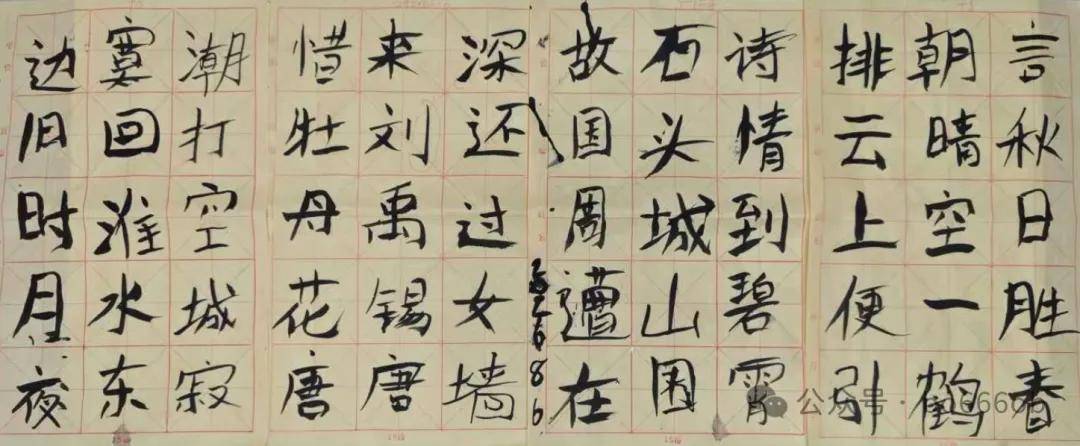 言秋日胜春
朝晴空一鹤
排云上便引
诗情到碧霄
石头城山围
故国周遭在
深还过女墙
来刘禹锡唐
惜牡丹花唐
潮打空城寂
寞回淮水东
边旧时月夜
公众号